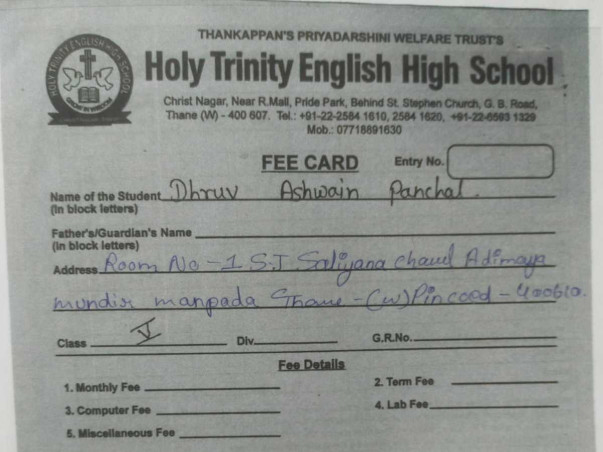 THANKAPPAN'S PRIYADARSHINI WELFARE TRUST'S
HOLY TRINITY ENGLISH HIGH SCHOOL
Holy Trinity English High School
Christ Nagar, Near R.Mall, Pride Park, Behind St. Stephen Church, G. B. Road,
Thane (W) - 400 607. Tel.: +91-22-2584 1610, 2584 1620, +91-22-6593 1329
Mob.: 07718891630
FEE CARD Entry No.
Name of the Student Dhruv Ashwain Panchal.
(In block letters)
Father's/Guardian's Name
(In block letters)
Address Room No-1 S.J Saliyana chawl Adimaya
mundir manpada Thane-(w) Pincood-400610.
Class V Div. G.R.No.
Fee Details
1. Monthly Fee 2. Term Fee
3. Computer Fee 4. Lab Fee
5. Miscellaneous Fee